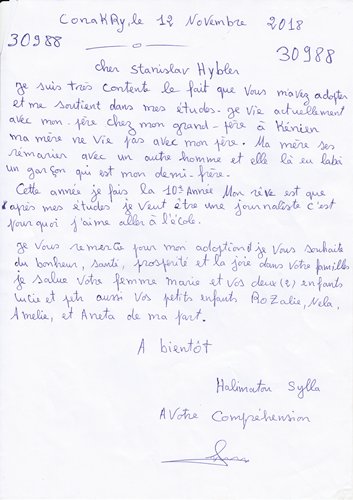 Conakry, le 12 Novembre 2018
30988
30988
cher Stanislav Hybler
Je suis très contente le fait que vous m'avez adopter
et me soutient dans mes études. Je vie actuellement
avec mon père chez mon grand-père à Kénien
ma mère ne vie pas avec mon père. Ma mère ses
rémarier avec un autre homme et elle là eu labà
un garçon qui est mon demi-frère.
Cette année je fais la 10è Année Mon rêve est que
après mes études je veut être une journaliste c'est
pourquoi j'aime aller à l'école.
Je vous remercie pour mon adoption je vous souhaite
du bonheur, santé, prospérité et la joie dans votre familles
je salue votre femme marie et vos deux (2) enfants
Lucie et petr aussi vos petits enfants RoZalie, Nela,
Amelie, et Aneta de ma part.
A bientôt
Halimatou Sylla
A Votre Compréhension